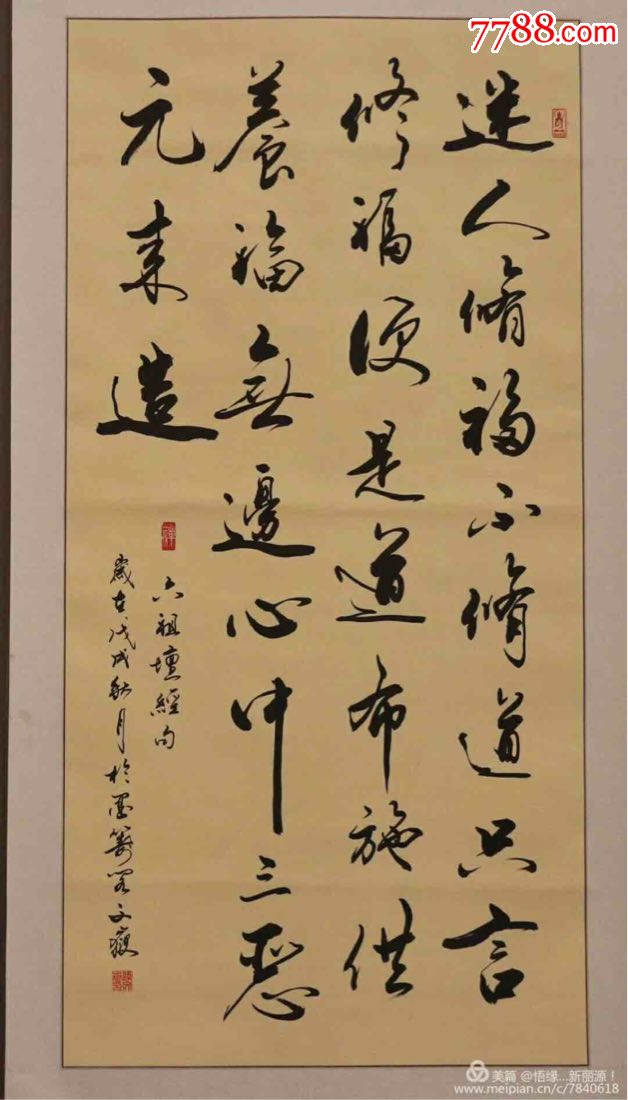 7788.com
迷人脩福不脩道只言
修福便是道布施供
養福無邊心中三惡
元来造
六祖壇經句
歲在戊戌秋月於墨
美篇 @悟缘...新丽源！
www.meipian.cn/c/7840618